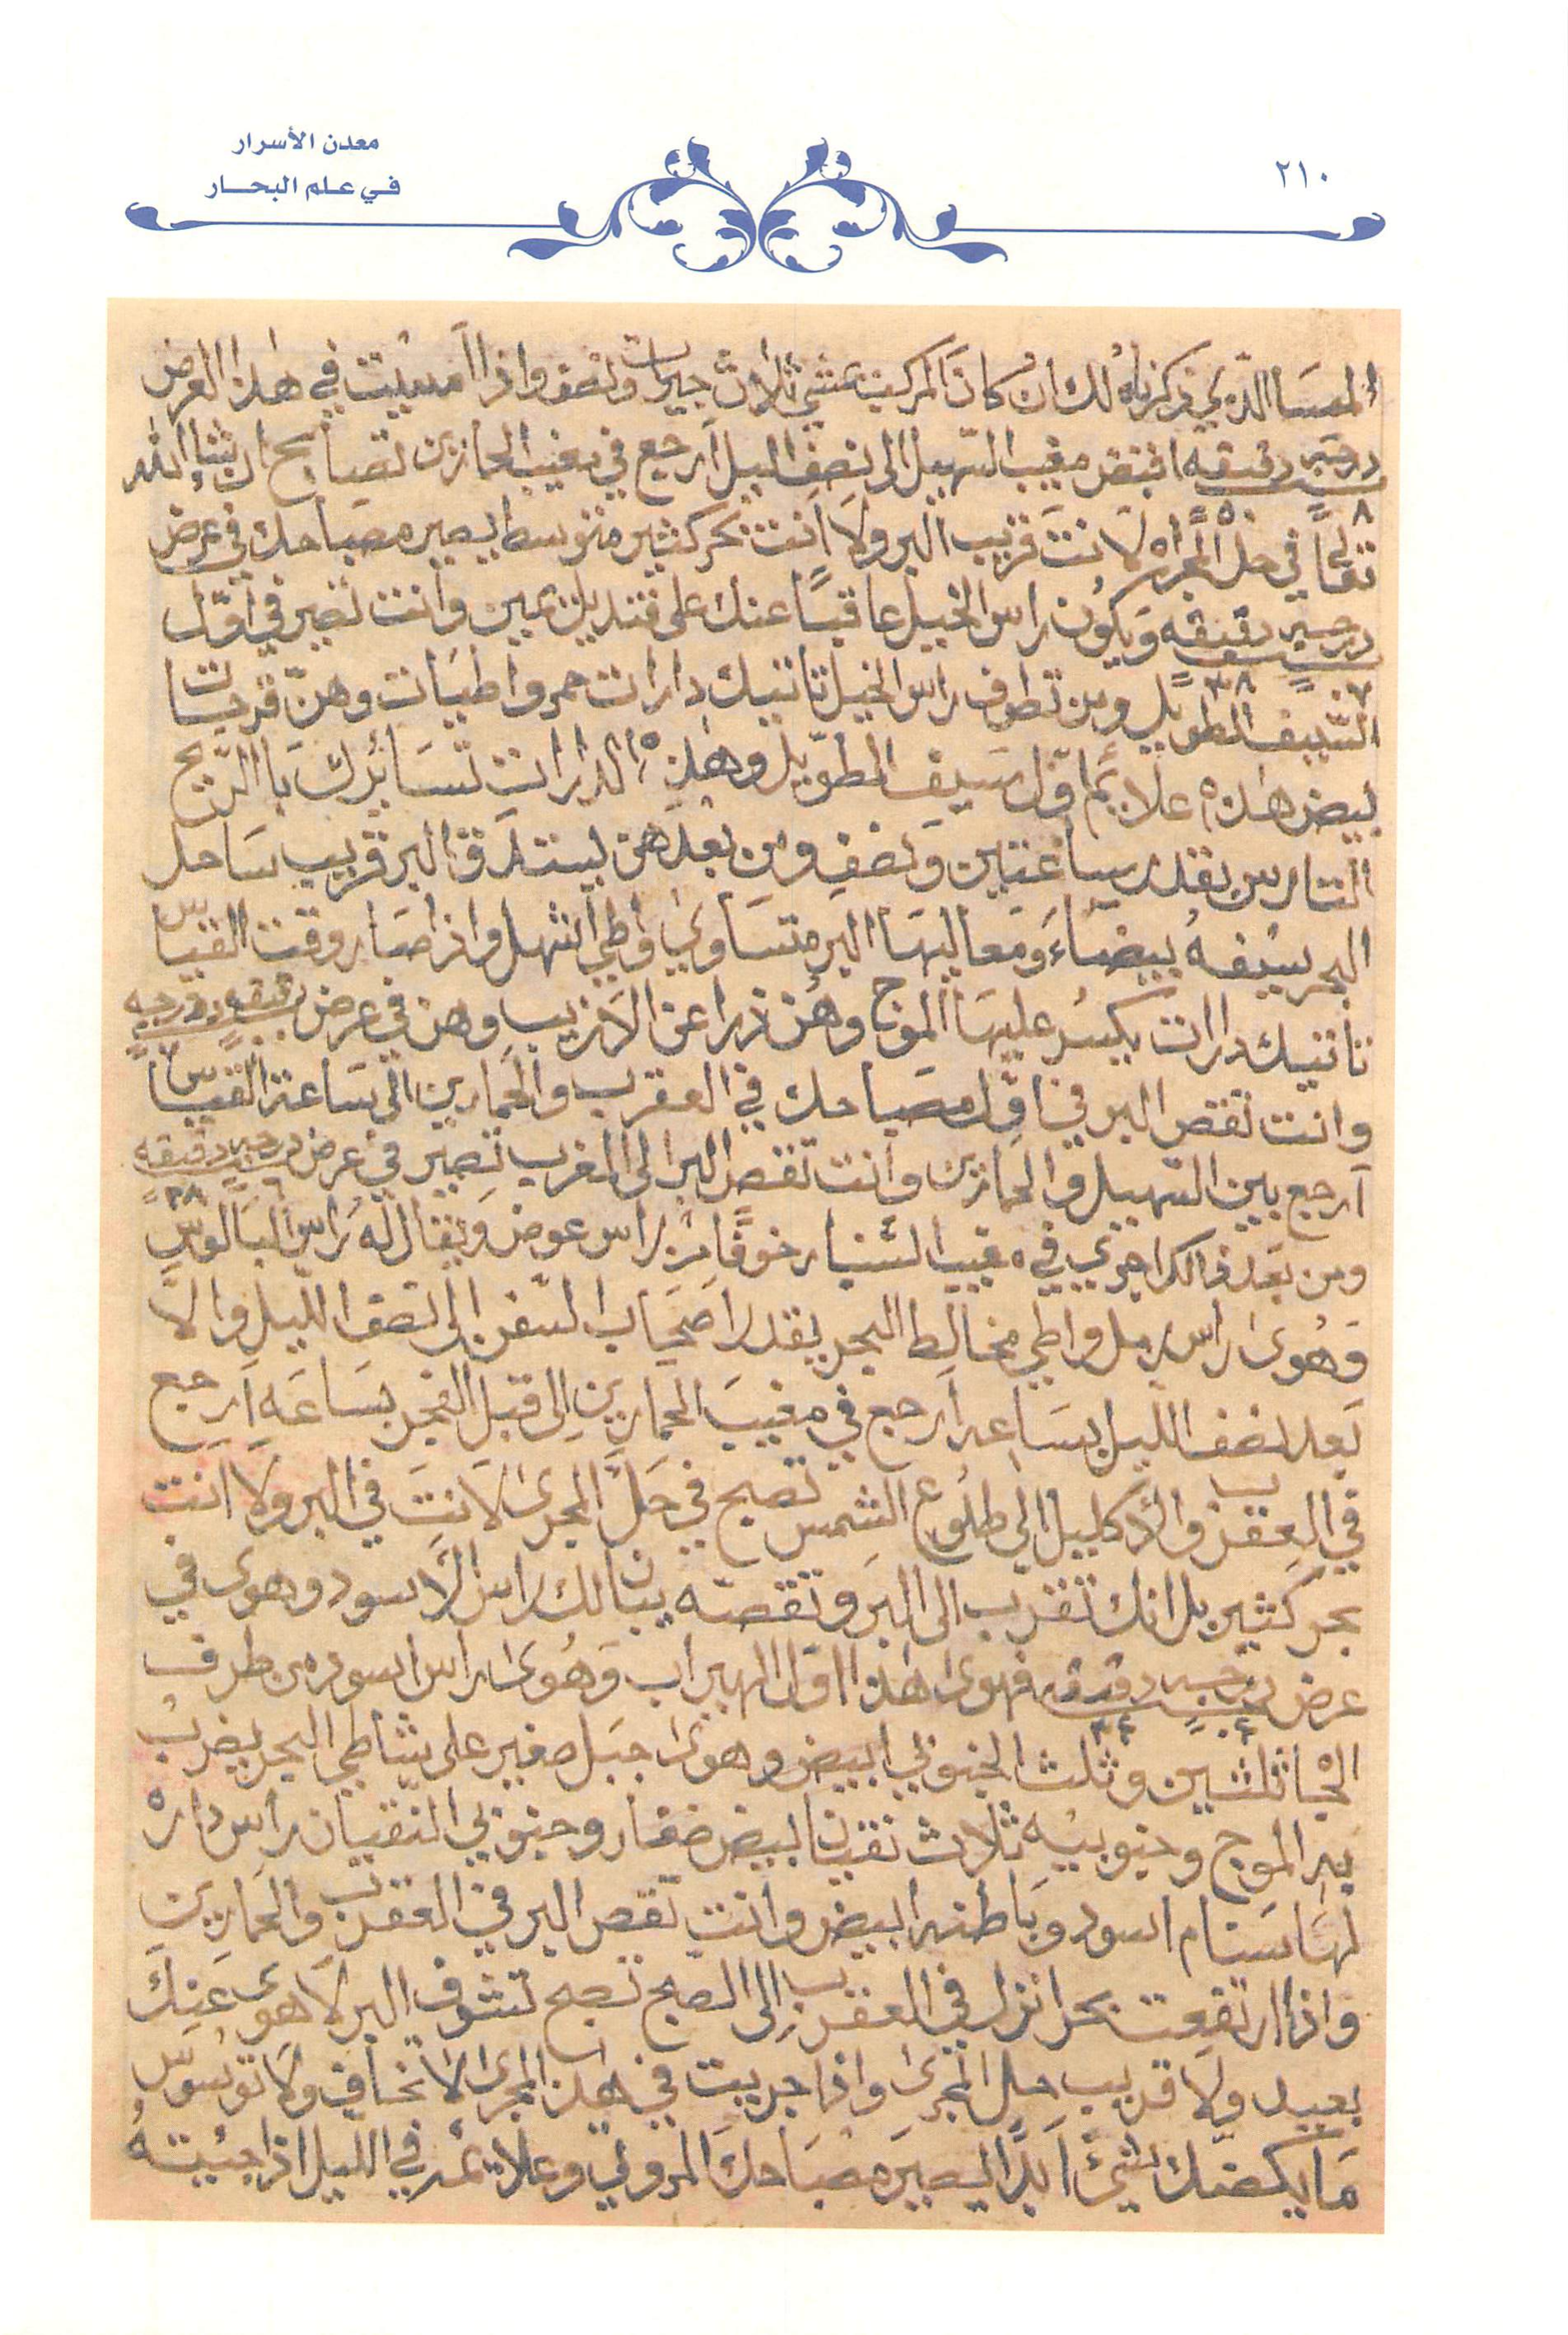 معدن الأسرار
في علم البحار
٢١٠
المسا الذي ذكرناه لك ان كان المركب يمشي ثلاث جيرات ونصف واذا امسيت في هذا العرض
درجه دقيقه اقبض مغيب السهيل الى نصف الليل ارجع في مغيب الحمارين تصابح ان شاء الله
٨ ٥٠
تعالى في حل المجراه لا انت قريب البر ولا انت بحر كثير متوسط يصير مصباحك في عرض
درجه دقيقه ويكون راس الخيل عاقبا عنك على قنديل يمين وانت تصير في اول
٠٧ ٣٨
السيف الطويل ومن تطوف راس الخيل تاتيك دارات حمر واطيات وهن قرحات
بيض هذه علايم اول سيف الطويل وهذه الدارات تسايرك با الريح
التارس بقدر ساعتين ونصف ومن بعدهن يستدق البر قريب ساحل
البحر سيفه بيضاء ومعاليها البر متساوي واطي اشهل واذا صار وقت القياس
تاتيك دارات يكسر عليها الموج وهن ذرا عن الازيب وهن في عرض دقيقه ودرجه
وانت تقص البر في اول مصباحك في العقرب والحمارين الى ساعة القياس
ارجع بين السهيل والحمارين وانت تقص البر الى المغرب تصير في عرض درجه دقيقه
٦ ٣٨
ومن بعد ذالك اجري في مغيب السنبار خوفا من راس عوض ويقال له راس البالوس
وهوى راس رمل واطي مخالط البحر يقدر اصحاب السفن الى نصف الليل والا
بعد نصف الليل بساعه ارجع في مغيب الحمارين الى قبل الفجر بساعه ارجع
في العقرب والاكليل الى طلوع الشمس تصبح في حل المجرى لا انت في البر ولا انت
بحر كثير بل انك تقرب الى البر وتقصه يبان لك راس الاسود وهوى في
عرض درجه دقيقه فهوى هذا اول الهيراب وهوى راس اسود من طرف
٤ ٣٤
الجا ثلثين وثلث الجنوبي ابيض وهوى جبل صغير على شاطي البحر يضرب
به الموج وجنوبيه ثلاث نقيان بيض صغار وجنوبي النقيان راس داره
لها سنام اسود وباطنه ابيض وانت تقص البر في العقرب والحمارين
واذا ارتفعت بحر انزل في العقرب الى الصبح تصبح تشوف البر لا هوى عنك
بعيد ولا قريب حل المجرى واذا جريت في هذا المجرى لا تخاف ولا توسوس
ما يكضك شيئ ابدا يصير مصباحك المروتي وعلايمه في الليل اذا جئيته